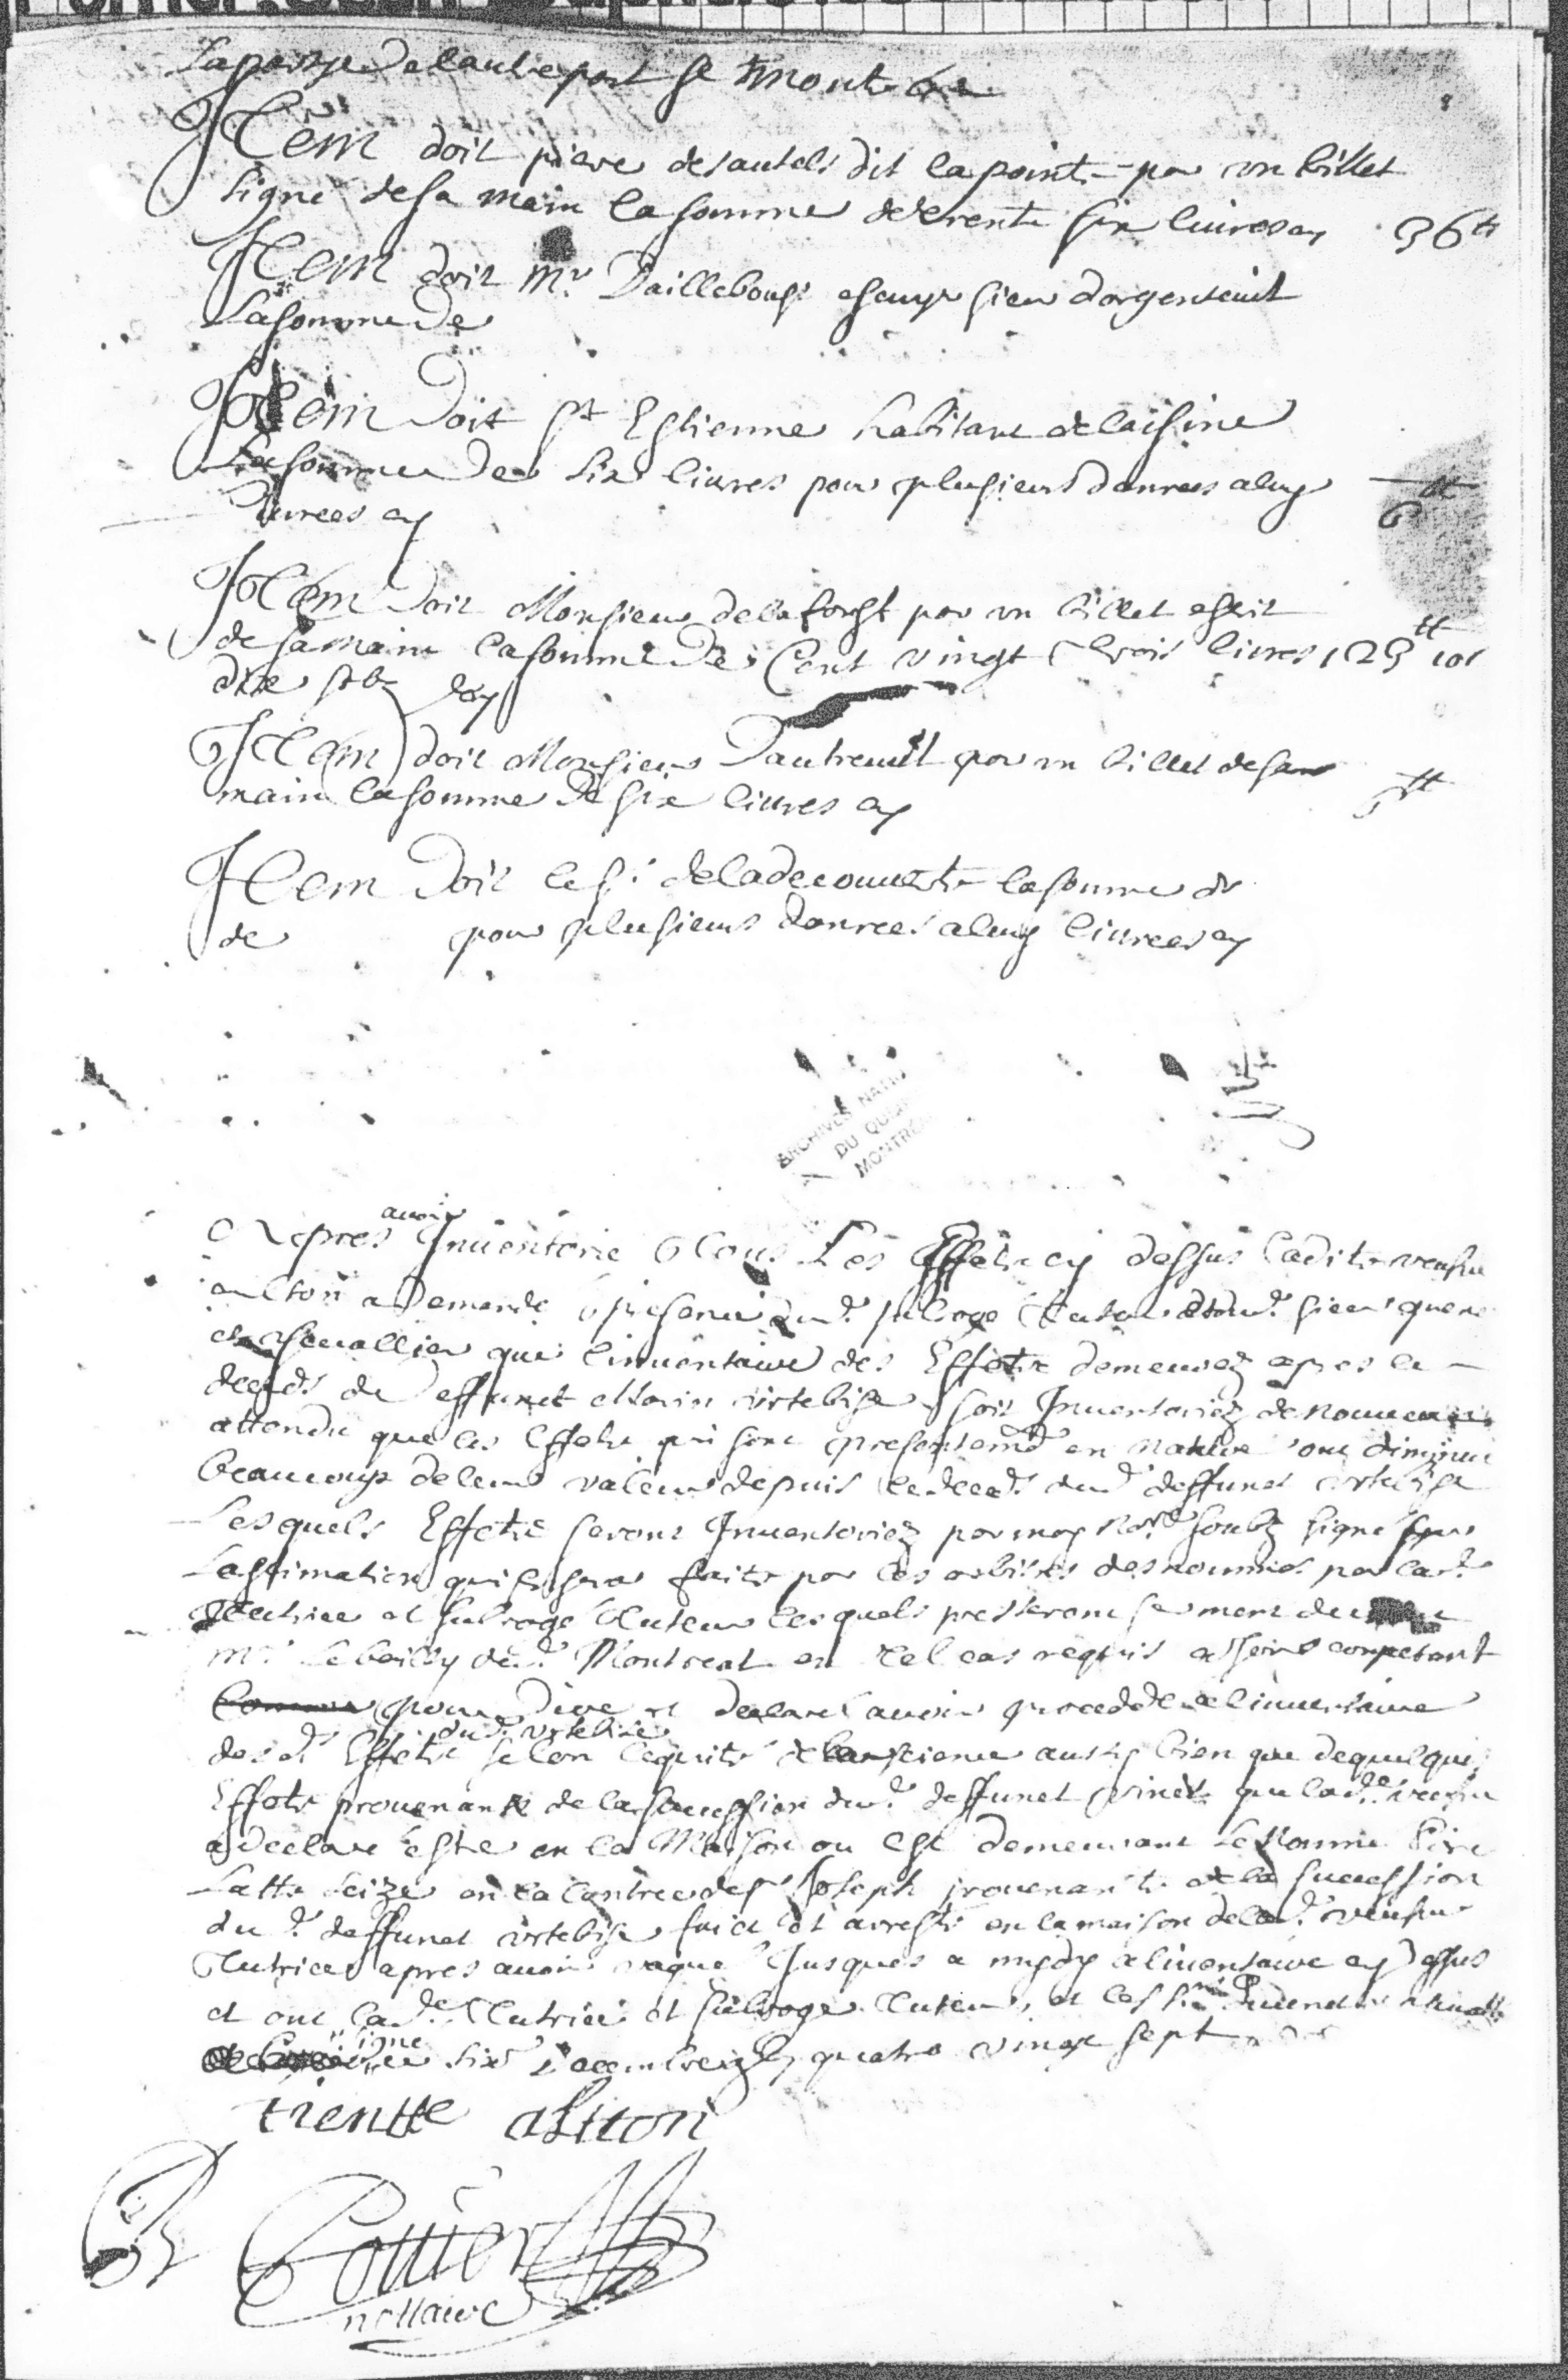 La page de lautre part se monte
Item doit piere desautels dit lapointe par un billet
signé desa main la somme de trente six livres cy 36tt
Item doit Mr Dailleboust escuyr sieur dargenteuil
La somme De
Item Doit St Estienne habitant de lachine
La somme De six livres pour plusieurs danrees a luy 6tt
livrees cy
Item Doit Monsieur de la forest par un billet escrit
de sa main la somme De Cent vingt trois livres 123tt 10s
dix sols cy
Item doit Monsieur Dautreuil par un billet de sa
main la somme De six livres cy 6tt
Item Doit le sr deladecouverte la somme de
de pour plusieurs danrees a luy livrees cy
ARCHIVES NATIO
DU QUEB
MONTRE
avoir
Apres Inventorie tous Les Effets cy dessus ladite veufve
a Demandé presence dud. subrogé tuteur sieur
chevallier que linventaire des Effets demeurez apres le
deceds de deffunct Marin urtebise soit Inventoriez de nouveau
attendu que les Effets qui sont presentemt en nature ont diminué
beaucoup de leur valeur depuis le deceds dud. deffunct urtebise
Lesquels Effets seront Inventoriez par moy Nore soubz signé
Lestimation qui en sera faite par les arbitres desnommés par lad.
tutrice et subrogé tuteur lesquels presteront serment
Mr Le bailly de Montreal en tel cas requis
pour Dire et declarer avoir procedé a linventaire
dud. urtebise
des d. Effets selon lequité de conscience aussy bien que de quelques
Effets provenant de la succession dud. deffunct vinet que lade. veufve
a declare estre en la Maison ou est demeurant Le Nommé
Latte seize en la Contree de St Joseph provenante de la succession
du d. deffunct urtebise faict et arresté en la maison de lad. veufve
tutrice apres avoir vaqué Jusques a mydy a linventaire cy dessus
et ont lade. tutrice et subrogé tuteur, et les srs
signé
six Decembre quatre vingt sept
trentte aliton
Pottier
nottaire